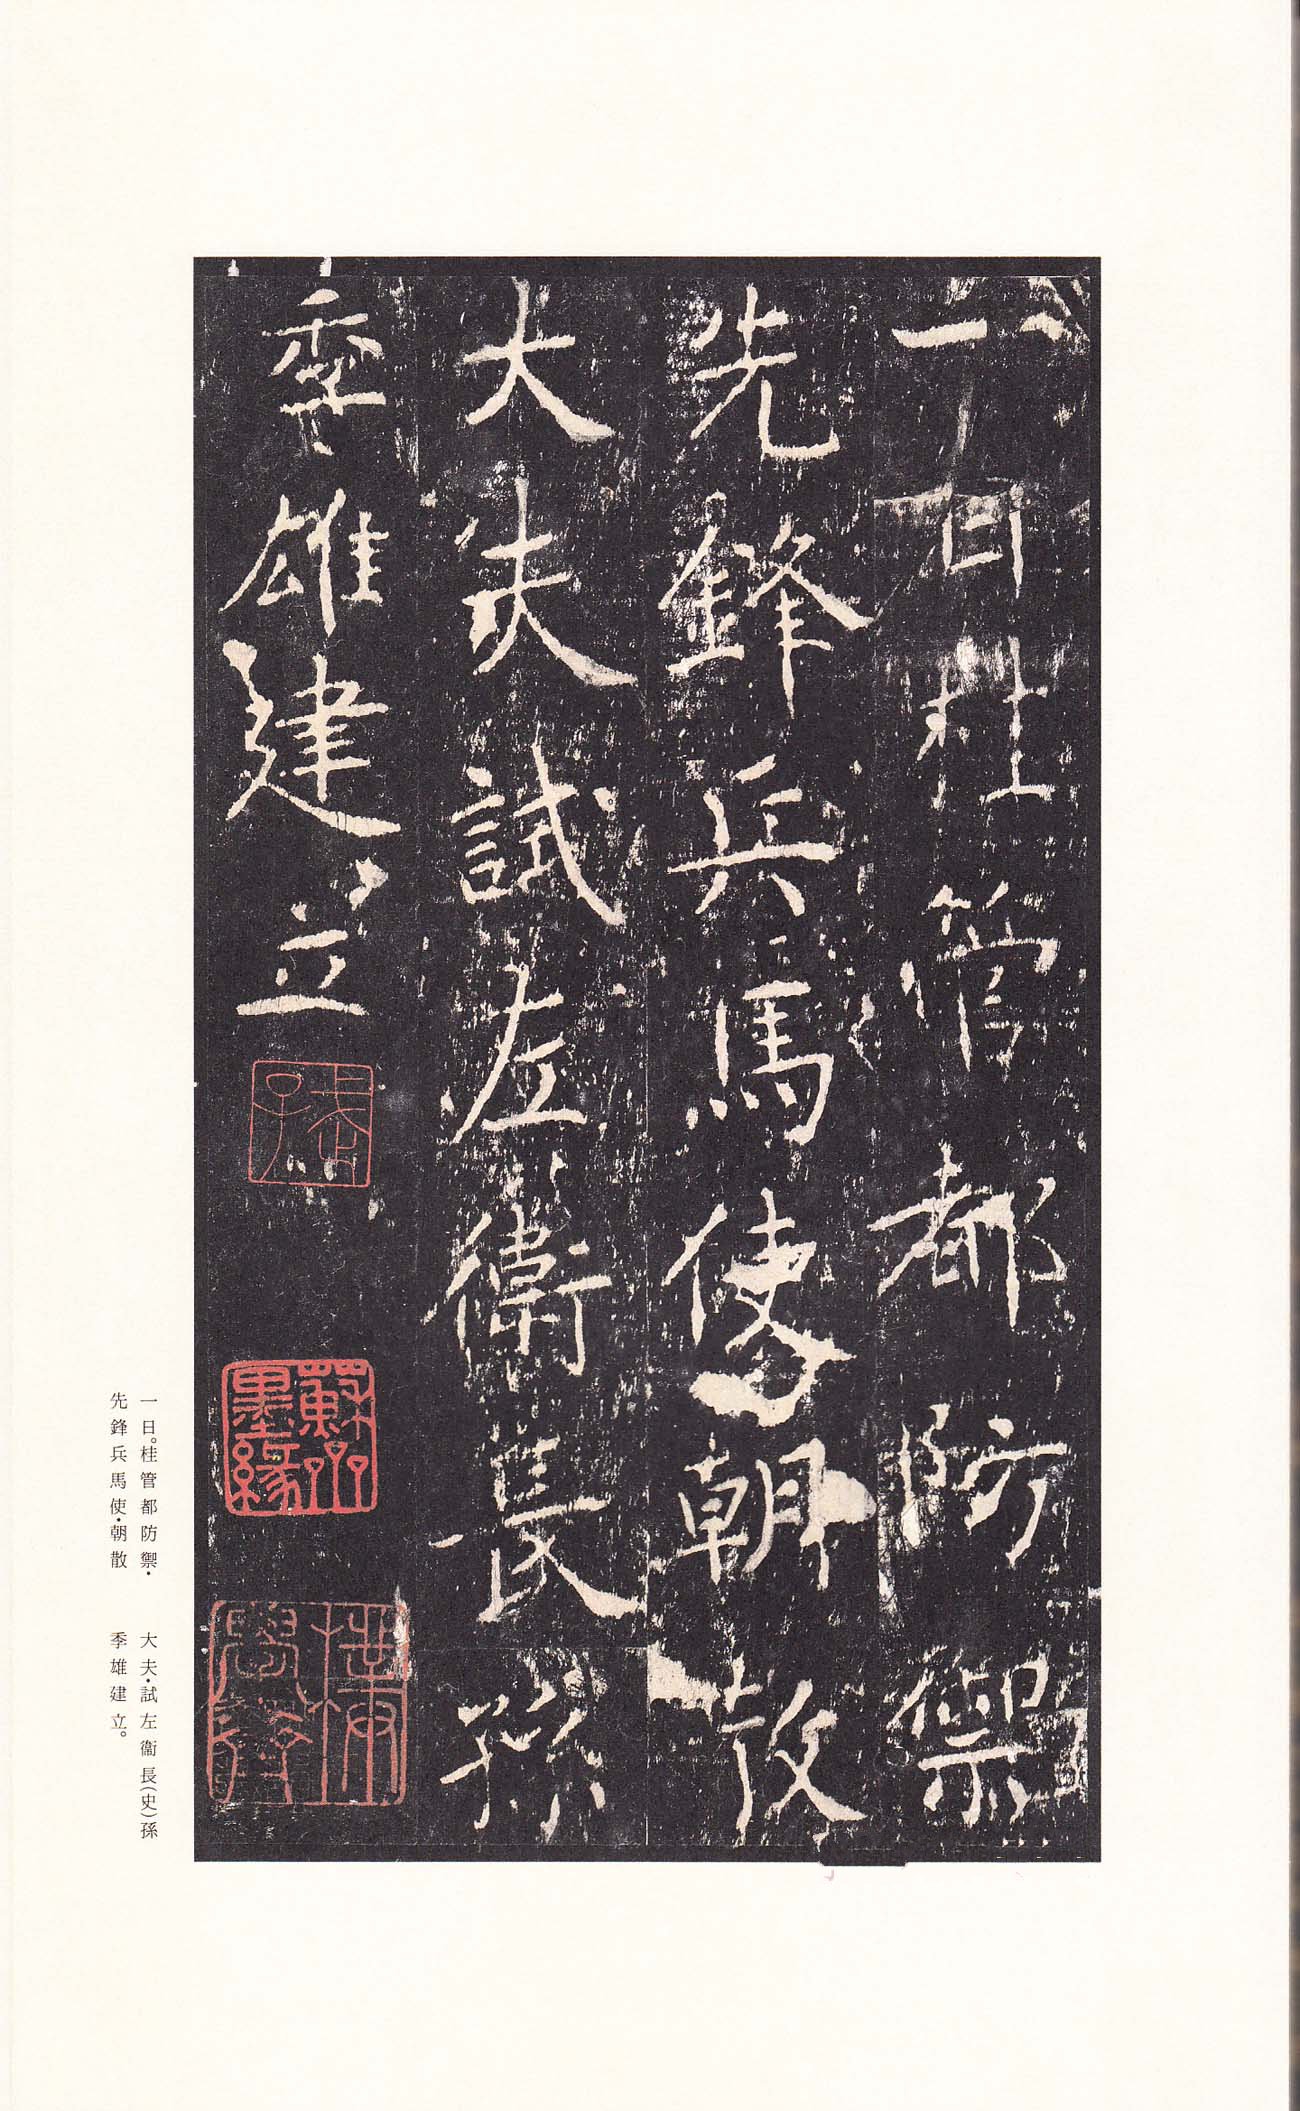 一日桂管都防禦
先鋒兵馬使朝散
大夫試左衞長孫
季雄建立
蘇齋墨緣
一日。桂管都防禦・
先鋒兵馬使・朝散
大夫・試左衞長(史)孫
季雄建立。